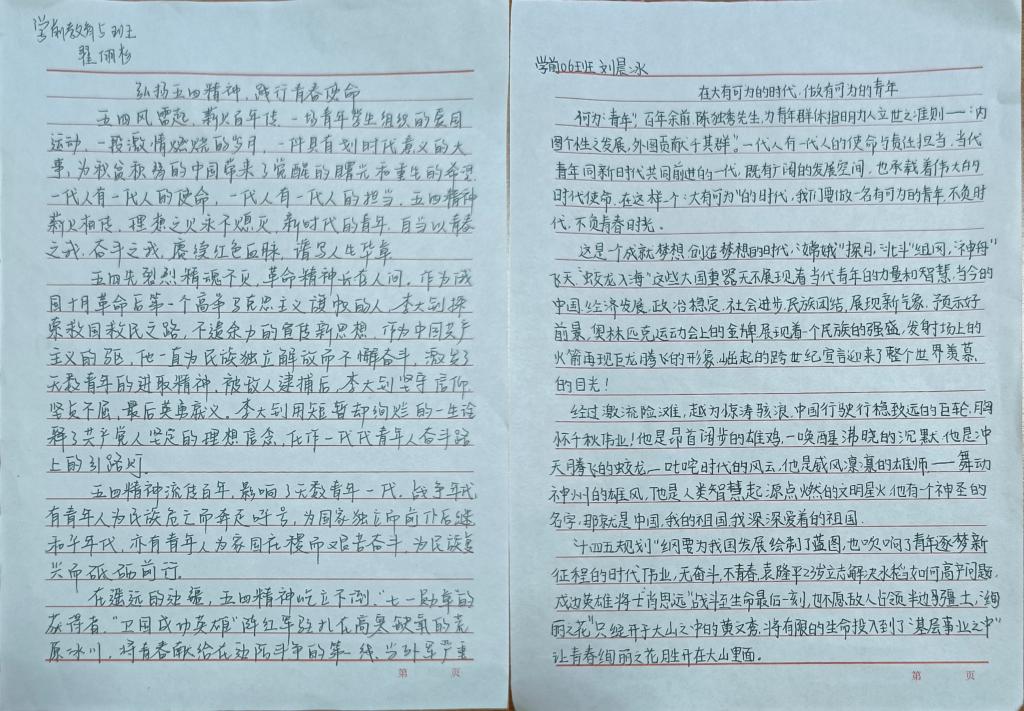 学前教育5班
翟佣杉
弘扬五四精神，践行青春使命
五四风雷起，薪火百年传，一场青年学生组织的爱国
运动，一段激情燃烧的岁月，一件具有划时代意义的大
事，为积贫积弱的中国带来了觉醒的曙光和重生的希望
一代人有一代人的使命，一代人有一代人的担当，五四精神
薪火相传，理想之火永不熄灭，新时代的青年，自当以青春
之我，奋斗之我，赓续红色血脉，谱写人生华章
五四先烈精魂不灭，革命精神长在人间。作为俄
国十月革命后第一个高举马克思主义旗帜的人，李大钊探
索救国救民之路，不遗余力的宣传新思想，作为中国共产
主义的先驱，他一直为民族独立解放而不懈奋斗，激发了
无数青年的进取精神，被敌人逮捕后，李大钊坚守信仰
坚贞不屈，最后英勇就义。李大钊用短暂却绚烂的一生诠
释了共产党人坚定的理想信念，化作一代代青年人奋斗路
上的引路灯.
五四精神流传百年，影响了无数青年一代，战争年代
有青年人为民族危亡而奔走呼号，为国家独立而前仆后继
和平年代，亦有青年人为家国在稷而艰苦奋斗，为民族复
兴而砥砺前行.
在遥远的边疆，五四精神屹立不倒，"七一勋章的
获得者，"卫国戍功英雄"陈红军驻扎在高寒缺氧的荒
原冰川，将青春献给在边防斗争的第一线，当外军严重
第 页
学前06班 刘晨冰
在大有可为的时代，做有可为的青年
何为"青年"，百年余前，陈独秀先生，为青年群体指明为人立世之准则——："内
图个性之发展，外图贡献于其群"。一代人有一代人的使命与责任担当，当代
青年同新时代共同前进的一代，既有广阔的发展空间，也承载着伟大的
时代使命，在这样一个："大有可为"的时代，我们要做一名有可为的青年，不负时
代，不负青春时光。
这是一个成就梦想，创造梦想的时代，"嫦娥"探月，"北斗"组网，"神舟"
飞天，"蛟龙入海"这些大国重器无不展现着当代青年的力量和智慧，当今的
中国，经济发展，政治稳定，社会进步，民族团结，展现新气象，预示好
前景，奥林匹克运动会上的金牌，展现着一个民族的强盛，发射场上的
火箭再现巨龙腾飞的形象，崛起的跨世纪宣言迎来了整个世界羡慕
的目光！
经过激流险滩，越为惊涛骇浪，中国行驶行稳致远的巨轮，胸
怀千秋伟业！他是昂首阔步的雄鸡，一唤醒沸晓的沉默，他是冲
天腾飞的蛟龙，一叱咤时代的风云，他是威风凛凛的雄师，——舞动
神州的雄风，他是人类智慧起源点燃的文明星火，他有一个神圣的
名字，那就是中国，我的祖国，我深深爱着的祖国.
"十四五规划"纲要为我国发展绘制了蓝图，也吹响了青年逐梦新
征程的时代伟业，无奋斗，不青春，袁隆平23岁立志解决水稻如何高产问题，
戍边英雄将士"肖思远"战斗至生命最后一刻，也不愿敌人占领半边疆土，"绚
丽之花"只绽开于大山之中的黄文秀，将有限的生命投入到了"基层事业之中"
让青春绚丽之花，月生开在大山里面。
第 页